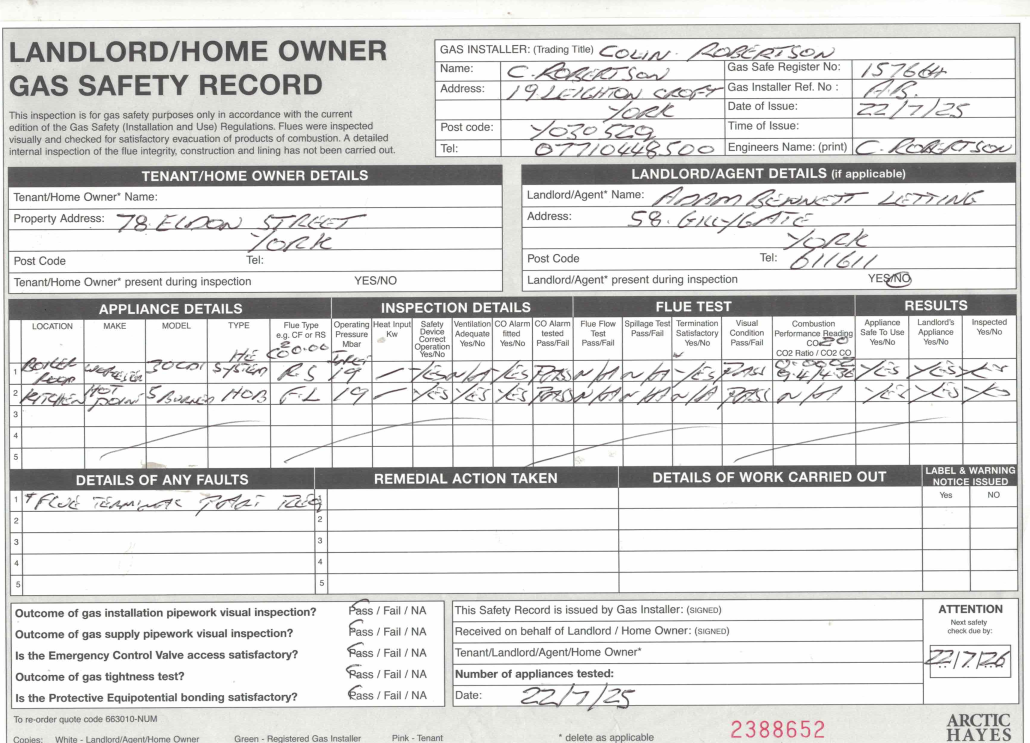 LANDLORD/HOME OWNER
GAS SAFETY RECORD
This inspection is for gas safety purposes only in accordance with the current
edition of the Gas Safety (Installation and Use) Regulations. Flues were inspected
visually and checked for satisfactory evacuation of products of combustion. A detailed
internal inspection of the flue integrity, construction and lining has not been carried out.
GAS INSTALLER: (Trading Title) COLIN ROBERTSON
Name: C. ROBERTSON Gas Safe Register No: 157664
Address: 19 LEIGHTON CROFT Gas Installer Ref. No : A.B.
YORK Date of Issue: 22/7/25
Post code: YO30 5ZG Time of Issue:
Tel: 07710448500 Engineers Name: (print) C. ROBERTSON
TENANT/HOME OWNER DETAILS
Tenant/Home Owner* Name:
Property Address: 78 ELDON STREET
YORK
Post Code Tel:
Tenant/Home Owner* present during inspection YES/NO
LANDLORD/AGENT DETAILS (if applicable)
Landlord/Agent* Name: ADAM BENNETT LETTING
Address: 58. GILLYGATE
YORK
Post Code Tel: 611611
Landlord/Agent* present during inspection YES/NO
APPLIANCE DETAILS INSPECTION DETAILS FLUE TEST RESULTS
LOCATION MAKE MODEL TYPE Flue Type e.g. CF or RS Operating Pressure Mbar Heat Input Kw Safety Device Correct Operation Yes/No Ventilation Adequate Yes/No CO Alarm fitted Yes/No CO Alarm tested Pass/Fail Flue Flow Test Pass/Fail Spillage Test Pass/Fail Termination Satisfactory Yes/No Visual Condition Pass/Fail Combustion Performance Reading CO2 CO2 Ratio / CO2 CO Appliance Safe To Use Yes/No Landlord's Appliance Yes/No Inspected Yes/No
1 BOILER ROOM WORCESTER 30CDI HE SYSTEM RS INLET 19 - YES N/A YES PASS N/A N/A YES PASS YES YES YES
2 KITCHEN HOT POINT 5 BURNER HOB F-L 19 - YES YES YES PASS N/A N/A N/A PASS N/A YES YES YES
3
4
5
DETAILS OF ANY FAULTS REMEDIAL ACTION TAKEN DETAILS OF WORK CARRIED OUT LABEL & WARNING NOTICE ISSUED
Yes NO
1 * FLUE TERMINAL 1
2 2
3 3
4 4
5 5
Outcome of gas installation pipework visual inspection? Pass / Fail / NA
Outcome of gas supply pipework visual inspection? Pass / Fail / NA
Is the Emergency Control Valve access satisfactory? Pass / Fail / NA
Outcome of gas tightness test? Pass / Fail / NA
Is the Protective Equipotential bonding satisfactory? Pass / Fail / NA
This Safety Record is issued by Gas Installer: (SIGNED)
Received on behalf of Landlord / Home Owner: (SIGNED)
Tenant/Landlord/Agent/Home Owner*
Number of appliances tested:
Date: 22/7/25
ATTENTION
Next safety
check due by:
22/7/26
To re-order quote code 663010-NUM
Copies: White - Landlord/Agent/Home Owner Green - Registered Gas Installer Pink - Tenant
* delete as applicable
2388652
ARCTIC
HAYES